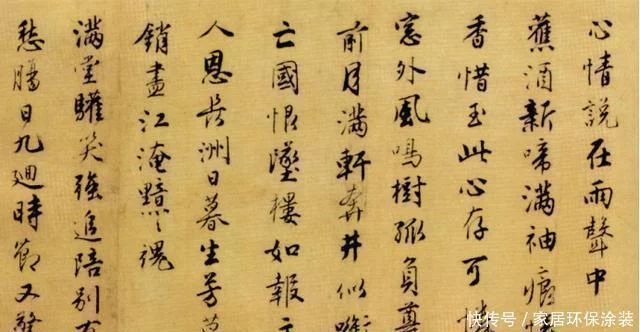 心情說在雨聲中
蕉酒新啼滿袖痕
香惜玉此心存可
窓外風鳴樹孤負尊
前月滿軒奔井似
亡國恨墜樓如報主
人恩長洲日暮生芳草
銷盡江淹黯々魂
滿堂驩笑強追陪別有
愁腸日九廻時節又驚
快传号/家居环保涂装